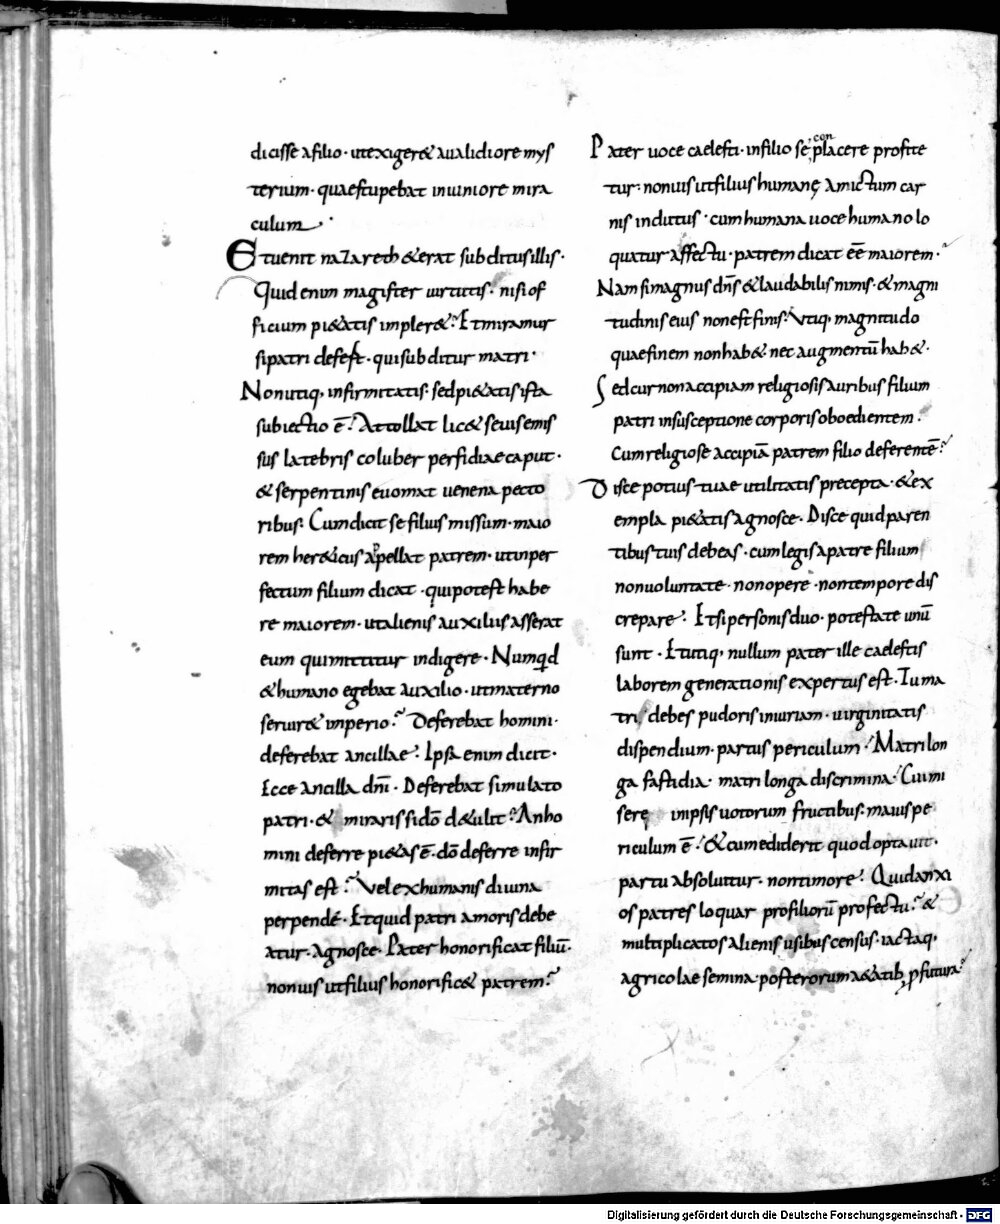 dicisse afilio · utexiger& aualidiore mys
terium · quae stupebat iniuniore mira
culum ·
Et uenit nazareth & erat subditus illis ·
Quid enim magister uirtutis · nisi of
ficium pi&atis impler&? Et miramur
si patri defert · qui subditur matri ·
Non utiq, infirmitatis · sed pi&atis ista
subiectio ē? Attollat lic& seuis emis
sus latebris coluber perfidiae caput ·
& serpentinis euomat uenena pecto
ribus · Cum dicit se filius missum · maio
rem her&icus appellat patrem · ut inper
fectum filium dicat · qui potest habe
re maiorem · ut alienis auxiliis asserat
eum qui mittitur indigere · Numq̣d
& humano egebat auxilio · ut materno
seruir& imperio? Deferebat homini ·
deferebat ancillae? Ipsa enim dicit ·
Ecce ancilla dn̄i · Deferebat simulato
patri · & miraris si dō d&ulit? An ho
mini deferre pi&as ē · dō deferre infir
mitas est? Vel ex humanis diuina
perpende · Et quid patri amoris debe
atur · agnosce · Pater honorificat filiū ·
non uis ut filius honorific& patrem?
Pater uoce caelesti · in filio se con placere profite
tur · non uis ut filius humanę amictum car
nis indutus · cum humana uoce humano lo
quatur affectu · patrem dicat eē maiorem ·
Nam si magnus dn̄s & laudabilis nimis · & magni
tudinis eius non est finis? Vtiq, magnitudo
quae finem non hab& · nec augmentū hab& ·
Sed cur non accipiam religiosis auribus filium
patri insusceptione corporis oboedientem ·
Cum religiose accipiā patrem filio deferentē?
Disce potius tuae utilitatis precepta · & ex
empla pi&atis agnosce · Disce quid paren
tibus tuis debeas · cum legis a patre filium
non uoluntate · non opere · non tempore dis
crepare? Et si personis duo · potestate unū
sunt · Et utiq, nullum pater ille caelestis
laborem generationis expertus est · Tu ma
tri debes pudoris iniuriam · uirginitatis
dispendium · partus periculum? Matri lon
ga fastidia · matri longa discrimina? Cui mi
serę in ipsis uotorum fructibus · maius pe
riculum ē? & cum ediderit quod optauit ·
partu absoluitur · non timore? Quid anxi
os patres loquar pro filiorū profectu? &
multiplicatos alienis usibus census · iactaq,
agricolae semina · posterorum a&atib, pfutura?
Digitalisierung gefördert durch die Deutsche Forschungsgemeinschaft - DFG